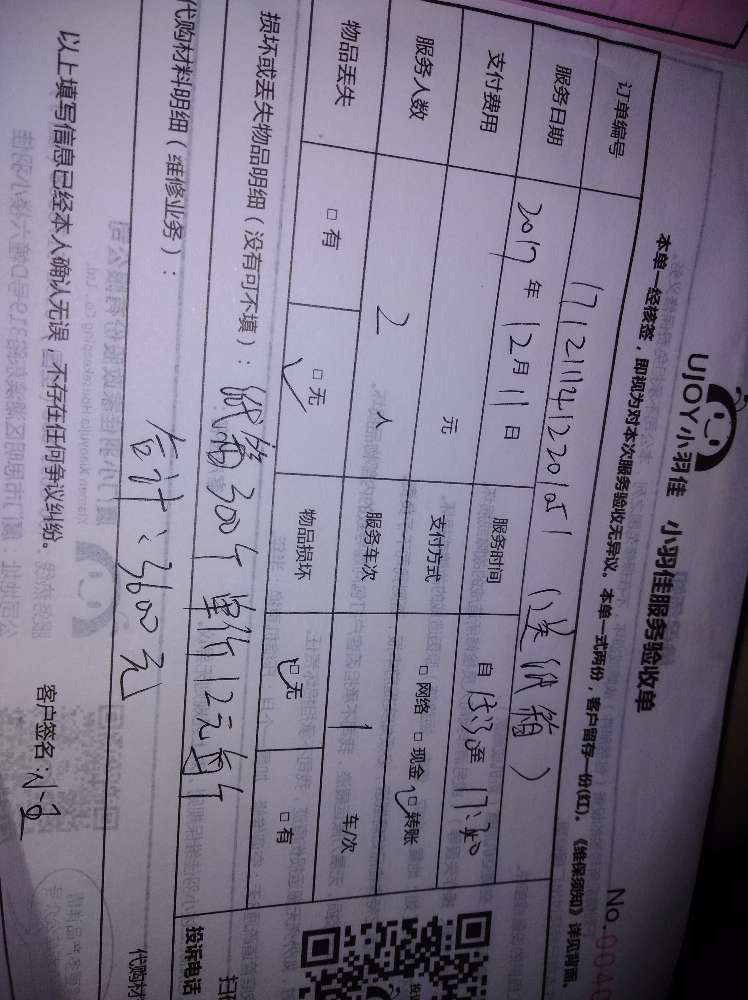 UJOY小羽佳 小羽佳服务验收单
No.004
本单一经核签，即视为对本次服务验收无异议。本单一式两份，客户留存一份(红)。《维保须知》详见背面。
订单编号 171211141220151 （送纸箱）
服务日期 2017年12月11日 服务时间 自 至17:40
支付费用 元 支付方式 □网络 □现金 □转账
服务人数 2 人 服务车次 1 车/次
物品丢失 □有 □无 物品损坏 □无 □有
损坏或丢失物品明细（没有可不填）：纸箱300个 单价12元每个
合计：3600元
代购材料明细（维修业务）：
代购材
投诉电话
以上填写信息已经本人确认无误，不存在任何争议纠纷。 客户签名: